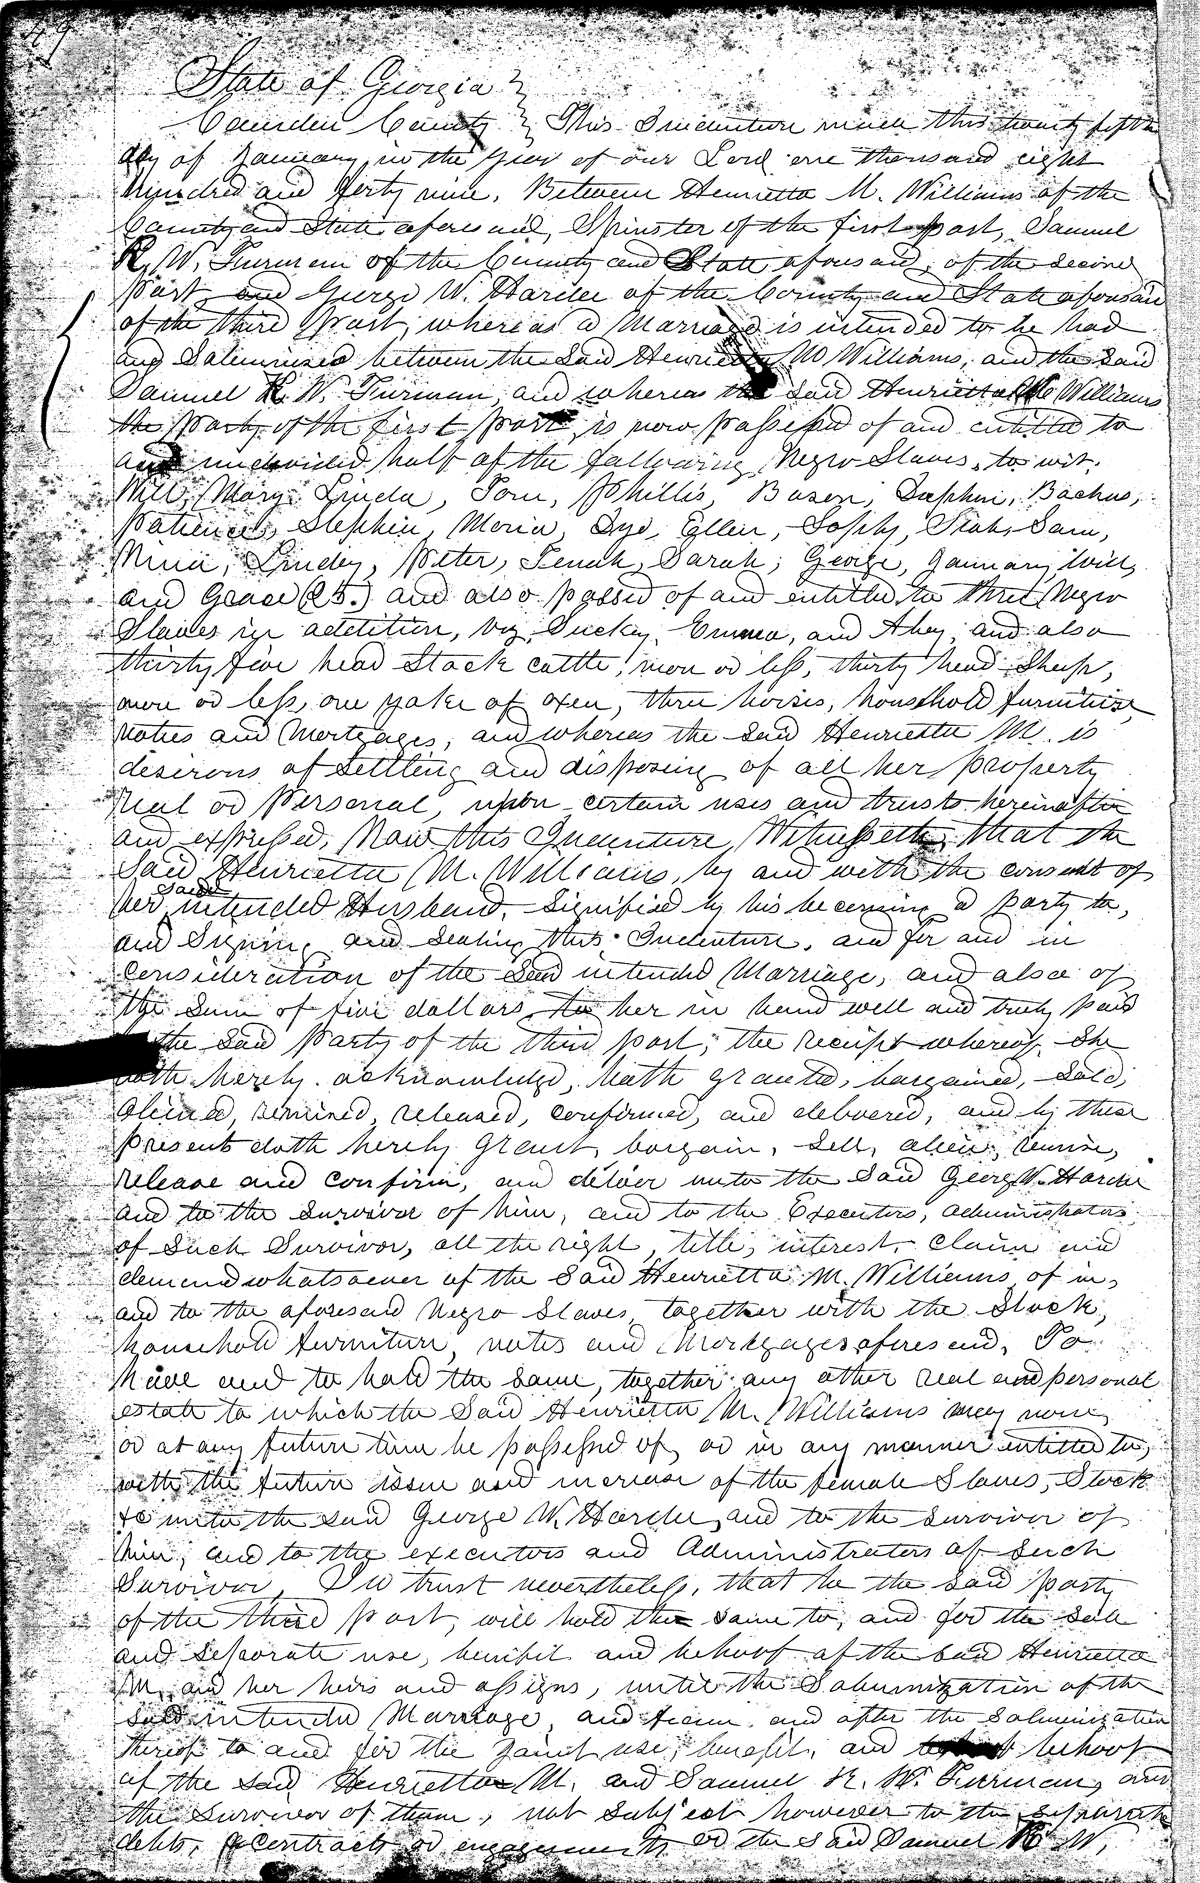 49
State of Georgia }
Camden County } This Indenture made this twenty fifth
day of January, in the Year of our Lord one thousand eight
hundred and forty nine, Between Henrietta M. Williams of the
County and State aforesaid, Spinster of the first part, Samuel
R. W. Furman of the County and State aforesaid, of the second
part, and George W. Hardee of the County and State aforesaid
of the third part, whereas a Marriage is intended to be had
and Solemnised between the Said Henrietta M Williams, and the Said
Samuel R. W. Furman, and whereas the Said Henrietta M Williams
the party of the first part, is now possessed of and entitled to
and undivided half of the following Negro Slaves, to wit,
Will, Mary, Linda, Tom, Phillis, Bazen, Daphne, Bachus,
Patience, Stephen, Moria, Ellen, Sophy, Sam,
Mina, Lindy, Peter, Tenah, Sarah, George, January, Will,
and Grace (25.) and also possed of and entitled to three Negro
Slaves in addition, viz, Suckey, Emma, and Abey, and also
thirty five head Stock cattle, more or less, thirty head Sheep,
more or less, one yoke of oxen, three horses, household furniture,
notes and Mortgages, and whereas the Said Henrietta M. is
desirous of Settling and disposing of all her property
real or personal, upon certain uses and trusts hereinafter
and expressed, Now this Indenture Witnesseth, that the
Said Henrietta M. Williams, by and with the consent of
her said intended Husband, Signified by his becoming a party to,
and Signing and Sealing this Indenture, and for and in
consideration of the Said intended Marriage, and also of
the Sum of five dollars, to her in hand well and truly paid
the Said Party of the third part, the receipt whereof She
doth hereby acknowledge, hath granted, bargained, Sold,
aliened, remised, released, confirmed, and delivered, and by these
present doth hereby grant, bargain, Sell, alien, remise,
release and confirm, and deliver unto the Said George W. Hardee
and to the Survivor of him, and to the Executors, administrators
of Such Survivor, all the right, title, interest, claim and
demand whatsoever of the Said Henrietta M. Williams, of in,
and to the aforesaid Negro Slaves, together with the Stock,
household furniture, notes and Mortgages aforesaid, To
have and to hold the same, together any other real and personal
estate to which the Said Henrietta M. Williams may now,
or at any future time be possessed of, or in any manner entitled to,
with the future issue and increase of the female Slaves, Stock
&c unto the said George W. Hardee, and to the survivor of
him, and to the executors and Administrators of Such
Survivor, In trust nevertheless, that he the Said party
of the third part, will hold the same to, and for the sole
and separate use, benefit and behoof of the said Henrietta
M. and her heirs and assigns, until the Solemnization of the
said intended Marriage, and from and after the Solemnization
thereof to and for the joint use, benefit, and behoof
of the said Henrietta M. and Samuel R. W. Furman, and
the survivor of them, not subject however to the separate
debts, contracts or engagements of the said Samuel R. W,